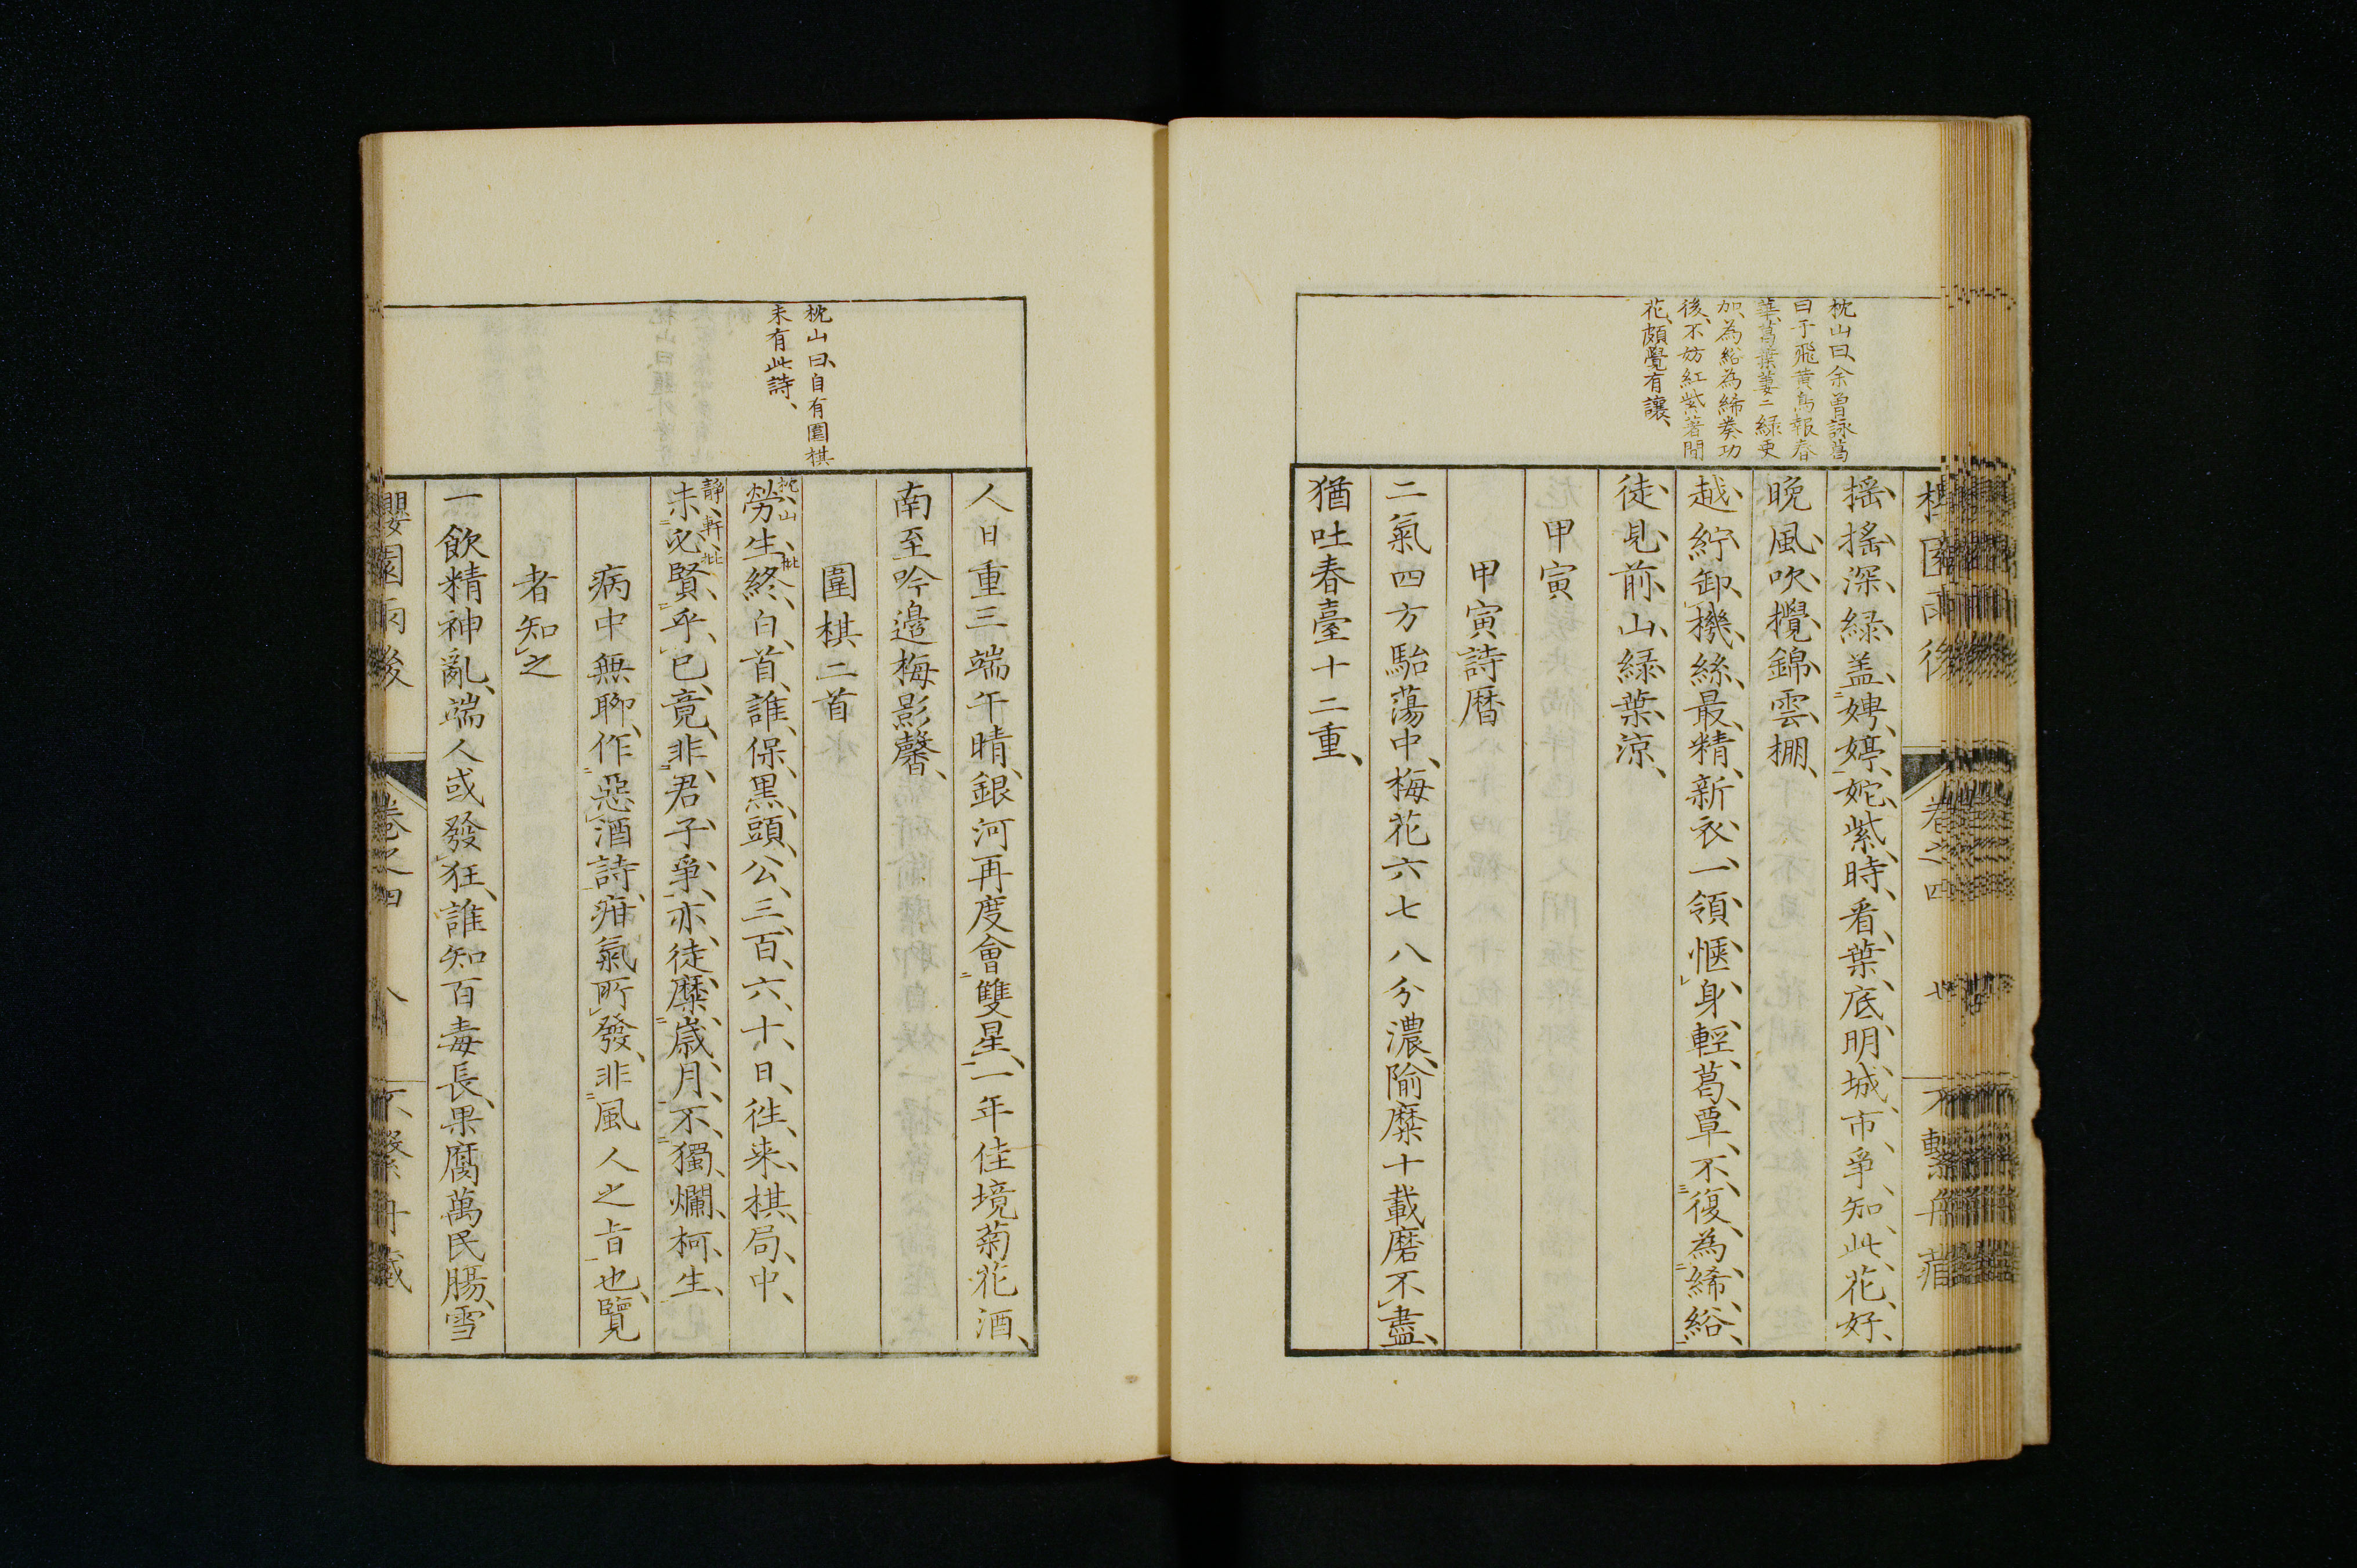 枕山曰、余曾詠葛
曰于飛黄鳥報春
華、葛葉萋〻緑更
加、為綌為絺奏功
後、不妨紅紫著閒
花、頗覺有讓、
揺揺深緑盖娉婷、姹紫時看葉底明、城市爭知此花好、
晩風吹攪錦雲棚、
越紵卸機絲最精、新衣一領愜身輕、葛覃不復為絺綌、
徒見前山緑葉涼、
甲寅
甲寅詩暦
二氣四方駘蕩中、梅花六七八分濃、隃糜十載磨不盡、
猶吐春臺十二重、
卷之四
七
枕山曰、自有圍棋
未有此詩、
人日重三端午晴、銀河再度會雙星、一年佳境菊花酒、
南至吟邉梅影馨、
圍棋二首
枕山批
勞生終白首、誰保黒頭公、三百六十日、徃来棋局中、
静軒批
未必賢乎已、竟非君子爭、亦徒糜歳月、不獨爛柯生、
病中無聊、作惡酒詩、疳氣所發、非風人之旨也、覽
者知之
一飲精神亂、端人或發狂、誰知百毒長、果腐萬民腸、雪
櫻園雨後
卷之四
八
不繋舟蔵